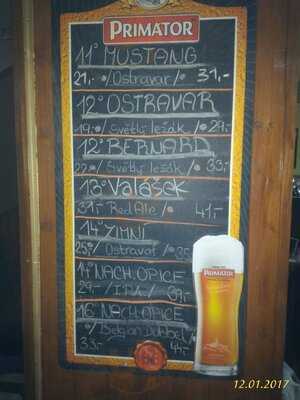 PRIMATOR
11° MUSTANG
21,- /Ostravar/ 31,-
12° OSTRAVAR
19,- /Světlý ležák/ 29,-
12° BERNARD
/Světlý ležák/ 33,-
13° Valášek
31,- Red Ale / 41,-
14° ZIMNÍ
25,- /Ostravar/ 35
14° NACH.OPICE
29,- /I.P.A./ 39,-
16° NACH.OPICE
/Belgian Dubbel/
33,- 44,-
PRIMATOR
12.01.2017